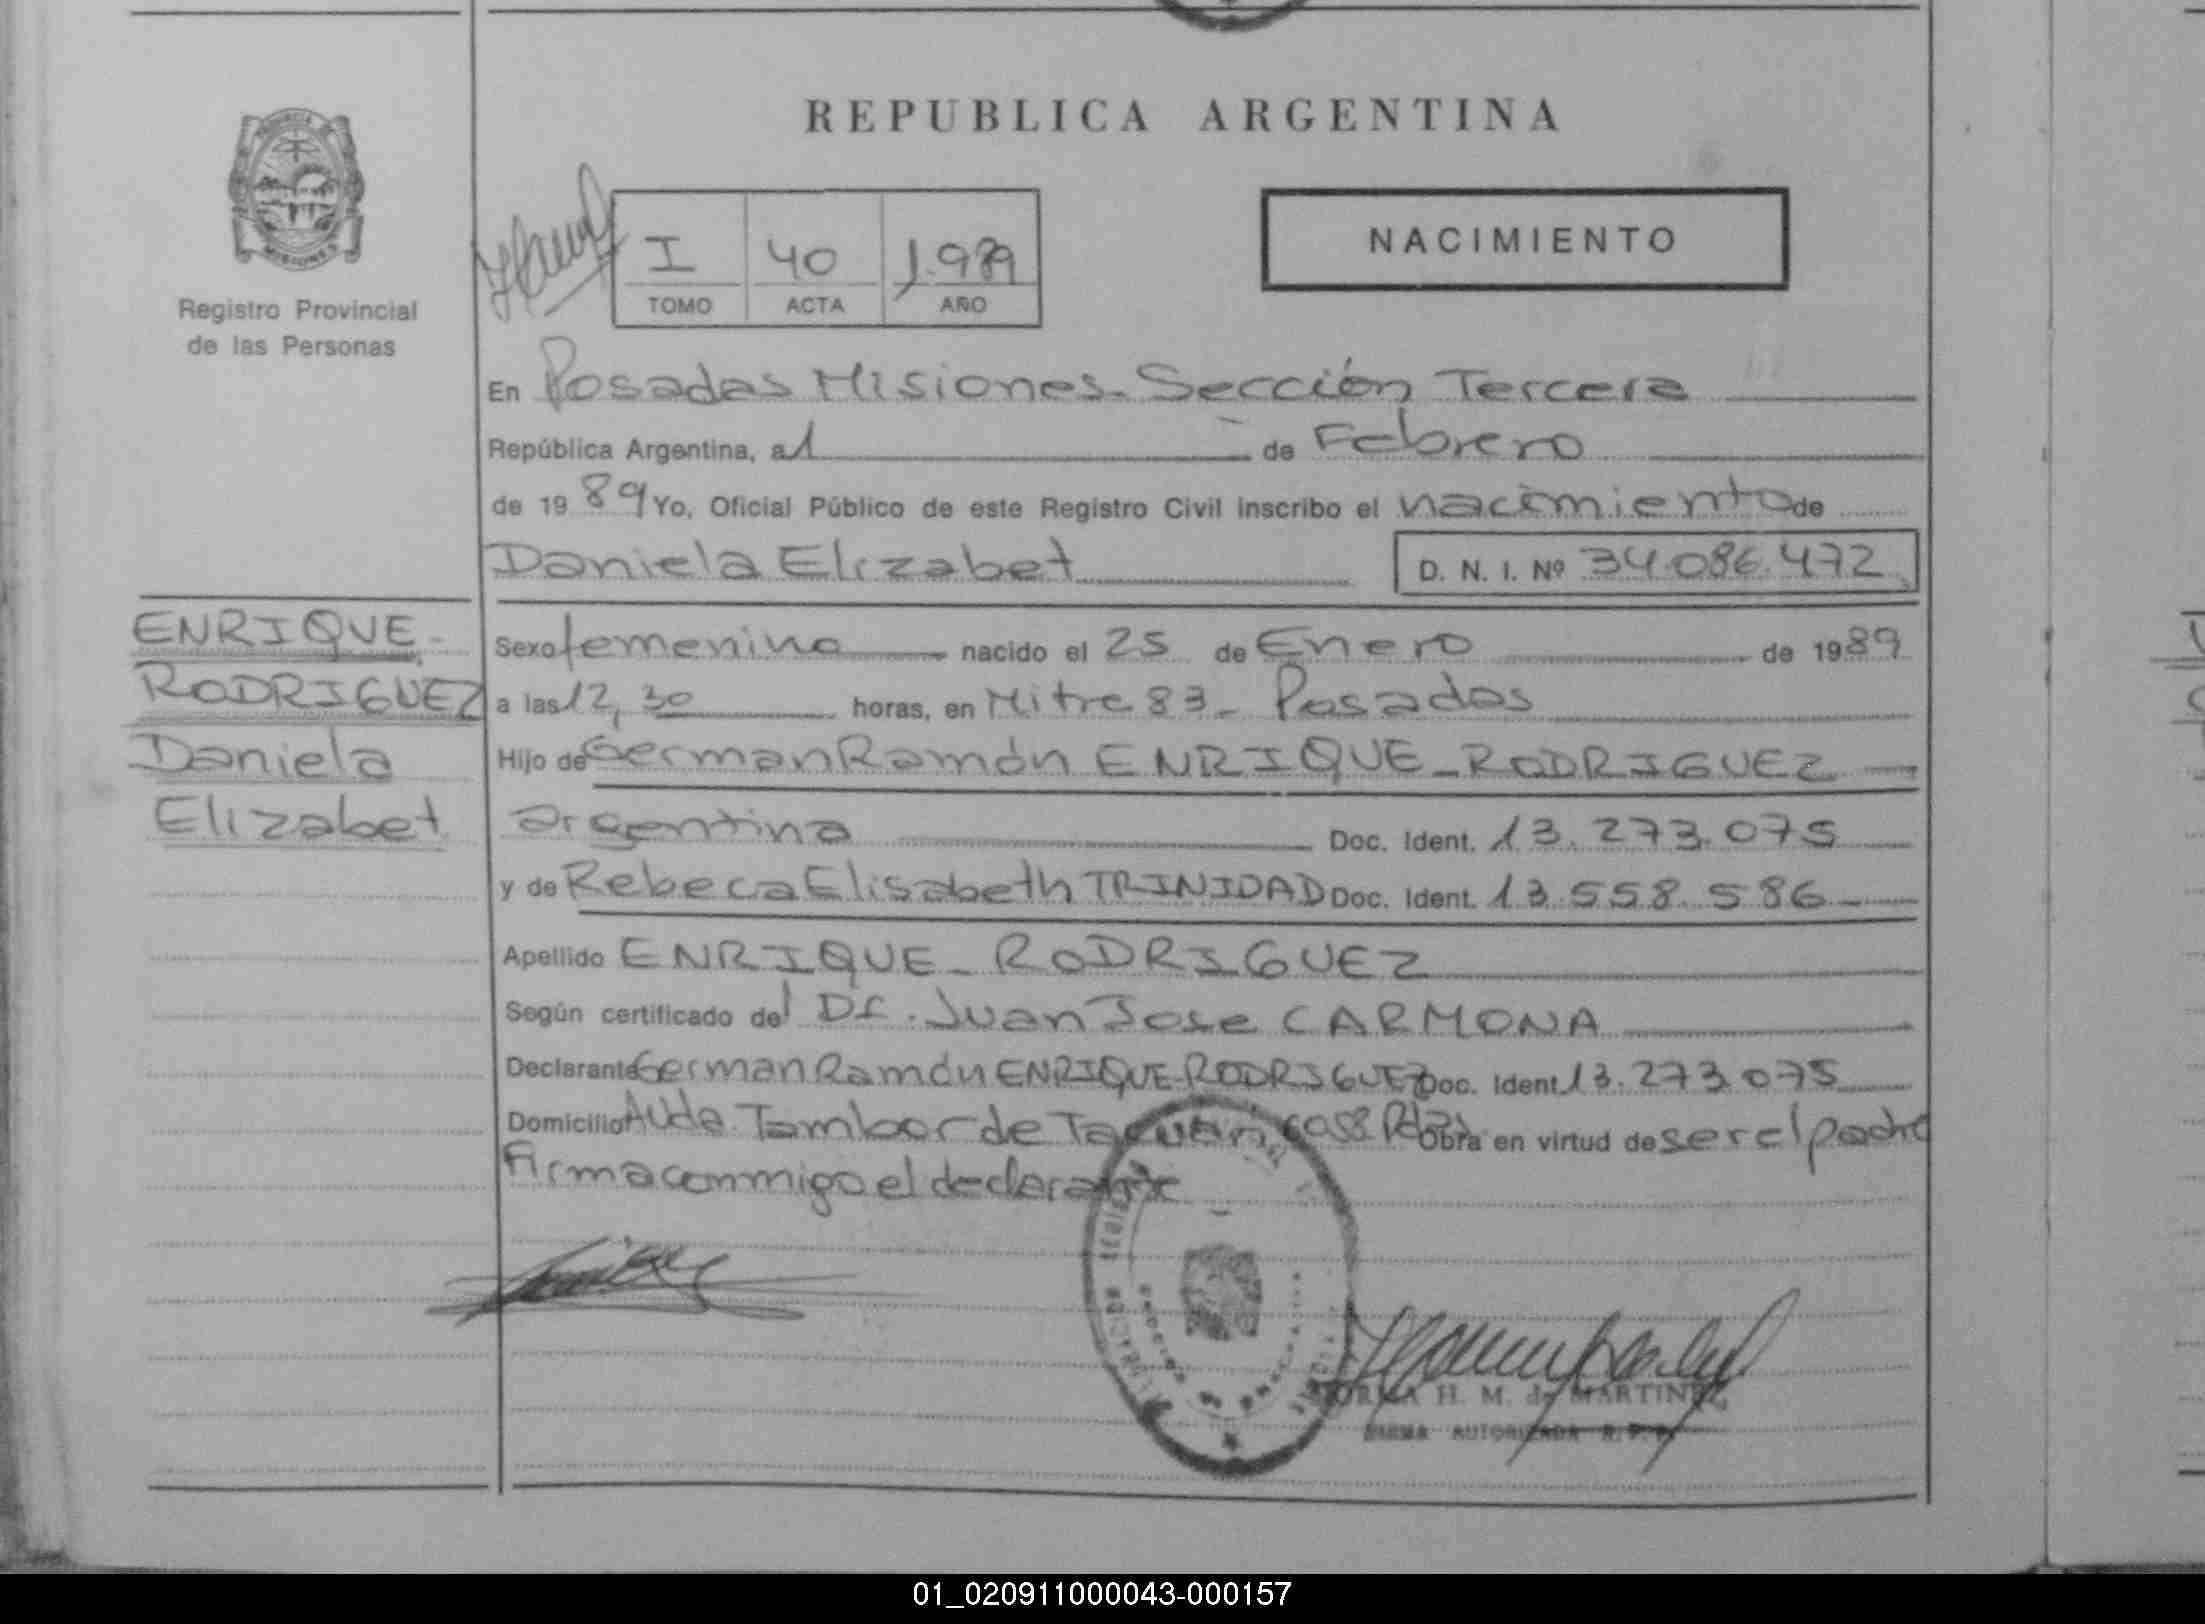 REPUBLICA ARGENTINA
PROVINCIA DE
MISIONES
Registro Provincial
de las Personas
I 40 1.989
TOMO ACTA AÑO
NACIMIENTO
En Posadas Misiones - Sección Tercera
República Argentina, al 1 de Febrero
de 1989 Yo, Oficial Público de este Registro Civil inscribo el nacimiento de
Daniela Elizabet D. N. I. Nº 34.086.472
ENRIQUE -
RODRIGUEZ
Daniela
Elizabet
Sexo femenino nacido el 25 de Enero de 1989
a las 12,30 horas, en Mitre 83 - Posadas
Hijo de German Ramón ENRIQUE - RODRIGUEZ
argentina Doc. Ident. 13.273.075
y de Rebeca Elisabeth TRINIDAD Doc. Ident. 13.558.586
Apellido ENRIQUE - RODRIGUEZ
Según certificado del Dr. Juan Jose CARMONA
Declarante German Ramón ENRIQUE-RODRIGUEZ Doc. Ident 13.273.075
Domicilio Avda. Tambor de Tacuari Obra en virtud de ser el padre
Firma conmigo el declarante
NORMA H. M. de MARTINEZ
FIRMA AUTORIZADA R. P. P.
01_020911000043-000157